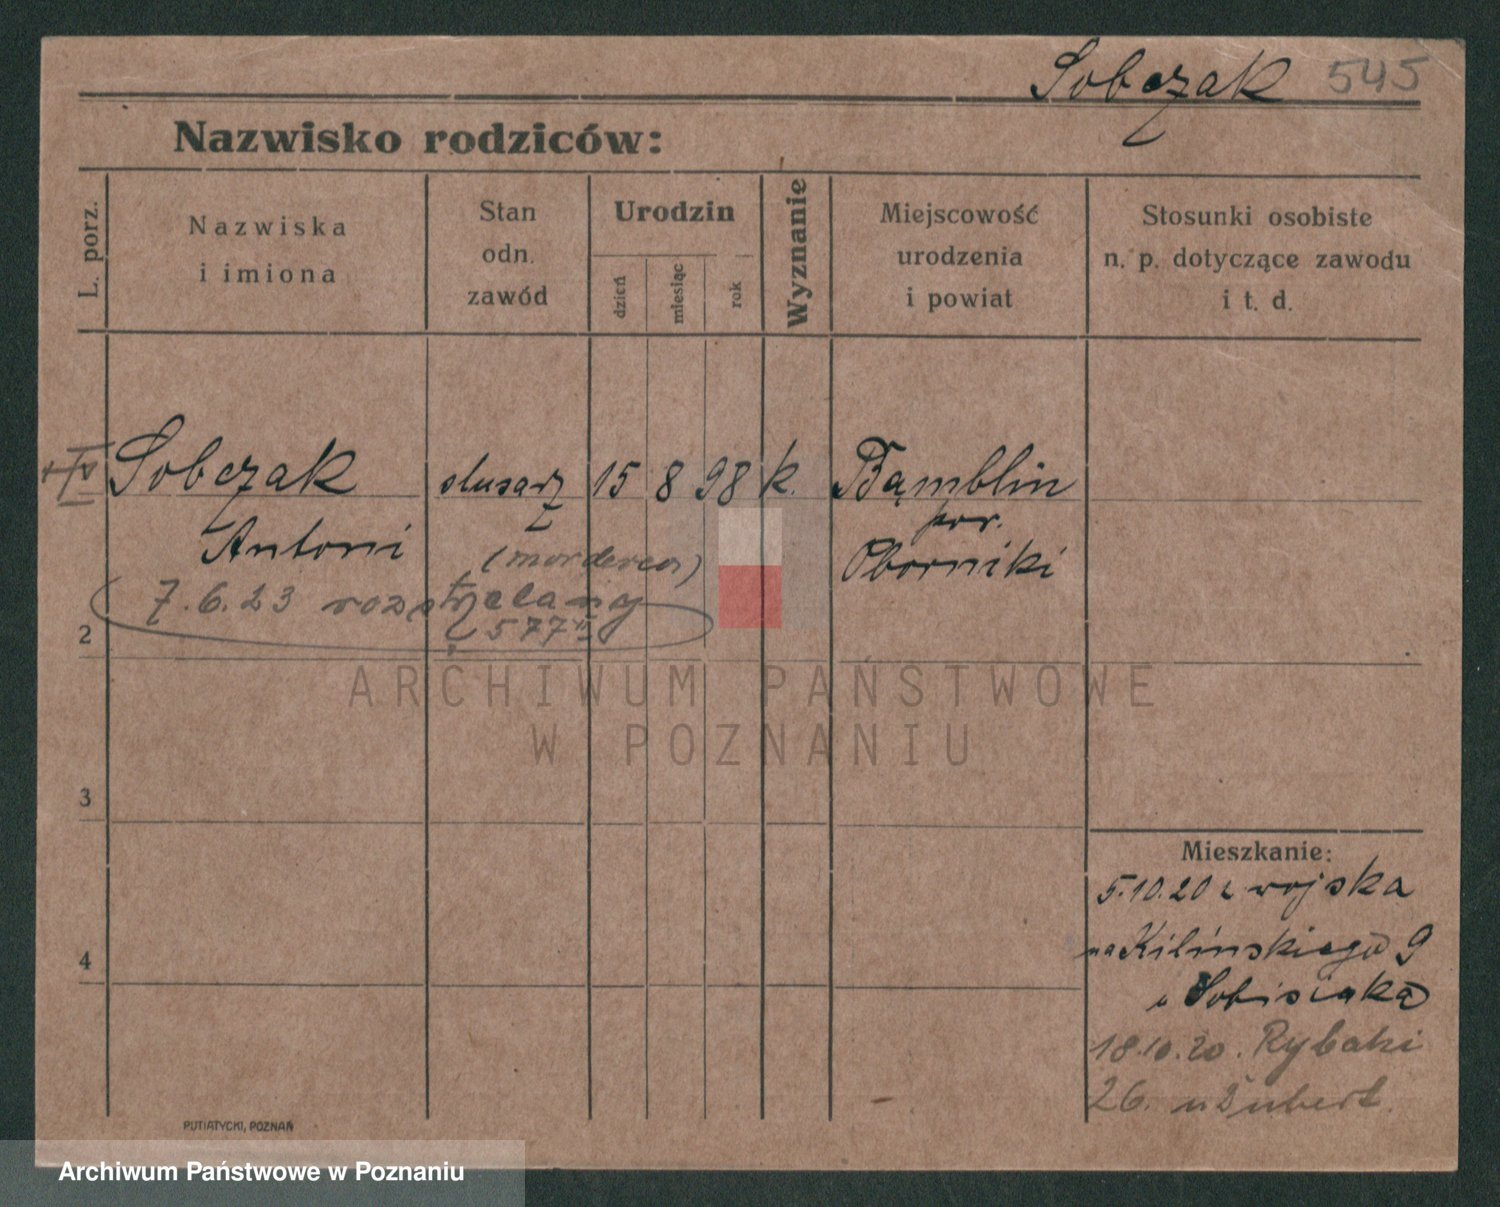 Sobczak 545
Nazwisko rodziców:
L. porz.
Nazwiska
i imiona
Stan
odn.
zawód
Urodzin
dzień
miesiąc
rok
Wyznanie
Miejscowość
urodzenia
i powiat
Stosunki osobiste
n. p. dotyczące zawodu
i t. d.
Sobczak ślusarz 15 8 98 k. Bąmblin
Antoni
pow.
Oborniki
(morderca)
7.6.23 rozstrzelany
577
2
3
4
Mieszkanie:
5.10.20 z wojska
na Kilińskiego 9
u Sobisiaka
18.10.20. Rybaki
26. u
PUTIATYCKI, POZNAŃ
ARCHIWUM PAŃSTWOWE
W POZNANIU
Archiwum Państwowe w Poznaniu